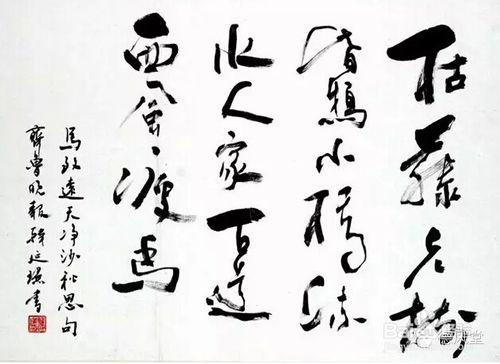 枯藤老樹
昏鴉小橋流
水人家古道
西風瘦馬
馬致遠天净沙秋思句
齊魯晚報 書